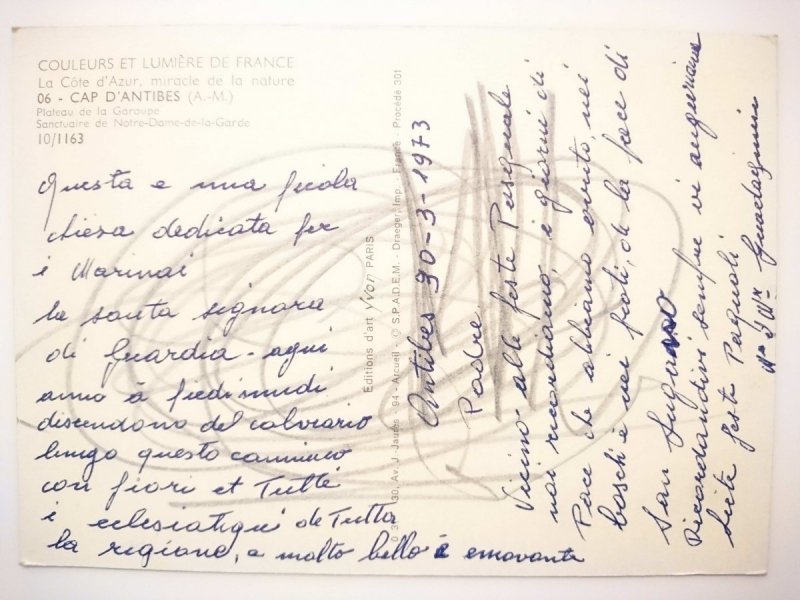 COULEURS ET LUMIÈRE DE FRANCE
La Côte d'Azur, miracle de la nature
06 - CAP D'ANTIBES (A.-M.)
Plateau de la Garoupe
Sanctuaire de Notre-Dame-de-la-Garde
10/1163
Questa e una picola
chiesa dedicata per
i Marinai
la santa signora
di guardia - ogni
anno à piedi nudi
discendono del calvario
lungo questo cammino
con fiori et Tutti
i eclesiatiqui de Tutta
la regione, e molto bello è emovante
Editions d'art Yvon PARIS
30, Av. J.-Jaurès - 94 - Arcueil - © S.P.A.D.E.M. - Draeger Imp. - France - Procédé 301
Antibes 30-3-1973
Padre
Vicino alle feste Pasquale
noi ricordiamo, i giorni di
Pace che abbiamo avuto, nei
boschi e nei prati, da la pace di
San
Ricordandovi sempre vi auguriamo
liete feste Pasquali
Mr